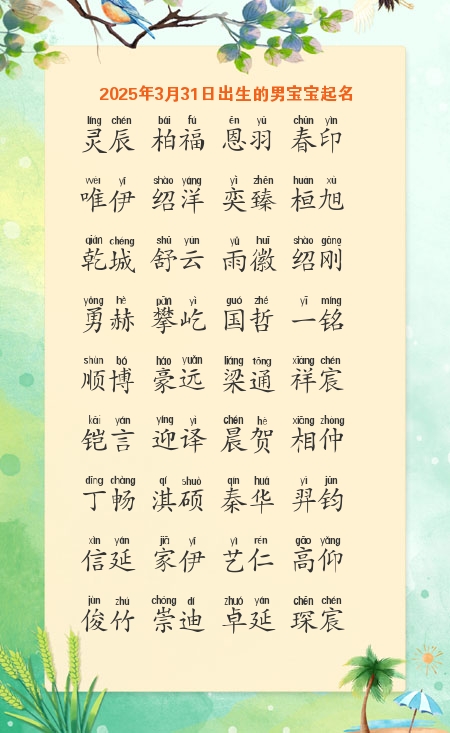 2025年3月31日出生的男宝宝起名
líng chén bǎi fú ēn yǔ chūn yìn
灵辰 柏福 恩羽 春印
wéi yī shào yáng yì zhēn huán xù
唯伊 绍洋 奕臻 桓旭
qián chéng shū yún yǔ huī shào gāng
乾城 舒云 雨徽 绍刚
yǒng hè pān yì guó zhé yī míng
勇赫 攀屹 国哲 一铭
shùn bó háo yuǎn liáng tōng xiáng chén
顺博 豪远 梁通 祥宸
kǎi yán yíng yì chén hè xiāng zhòng
铠言 迎译 晨贺 相仲
dīng chàng qí shuò qín huá yì jūn
丁畅 淇硕 秦华 羿钧
xìn yán jiā yī yì rén gāo yǎng
信延 家伊 艺仁 高仰
jùn zhú chóng dí zhuó yán chēn chén
俊竹 崇迪 卓延 琛宸